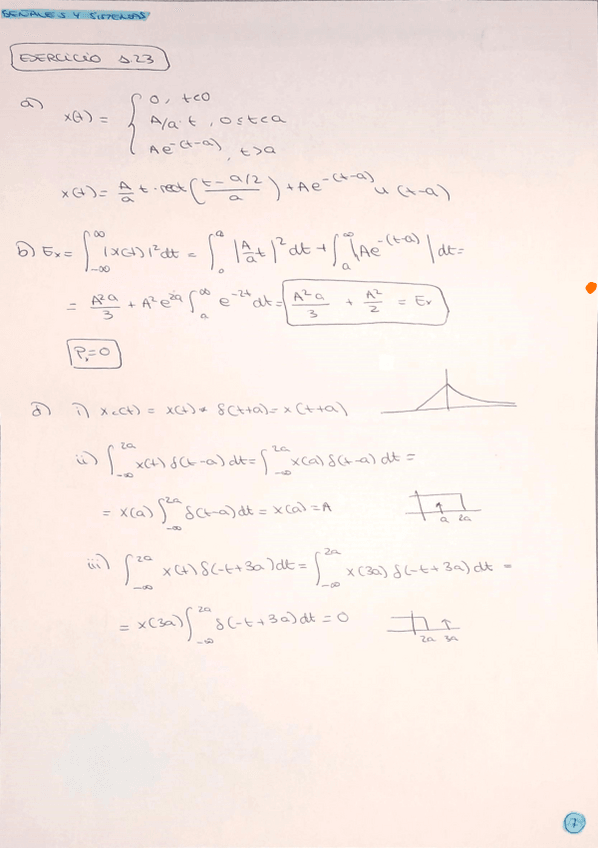 SEÑALES Y SISTEMAS
EJERCICIO 1.23
a) x(t) = { 0, t<0
A/a · t, 0≤t<a
Ae^-(t-a), t>a
x(t) = A/a t · rect((t-a/2)/a) + Ae^-(t-a) u(t-a)
b) Ex = ∫_{-∞}^{∞} |x(t)|² dt = ∫_0^a |A/a t|² dt + ∫_a^∞ |Ae^-(t-a)| dt =
= A²a/3 + A² e^{2a} ∫_a^∞ e^{-2t} dt = A²a/3 + A²/2 = Ex
Px=0
d) i) xc(t) = x(t) * δ(t+a) = x(t+a)
ii) ∫_{-∞}^{2a} x(t) δ(t-a) dt = ∫_{-∞}^{2a} x(a) δ(t-a) dt =
= x(a) ∫_{-∞}^{2a} δ(t-a) dt = x(a) = A
a 2a
iii) ∫_{-∞}^{2a} x(t) δ(-t+3a) dt = ∫_{-∞}^{2a} x(3a) δ(-t+3a) dt =
= x(3a) ∫_{-∞}^{2a} δ(-t+3a) dt = 0
2a 3a
7